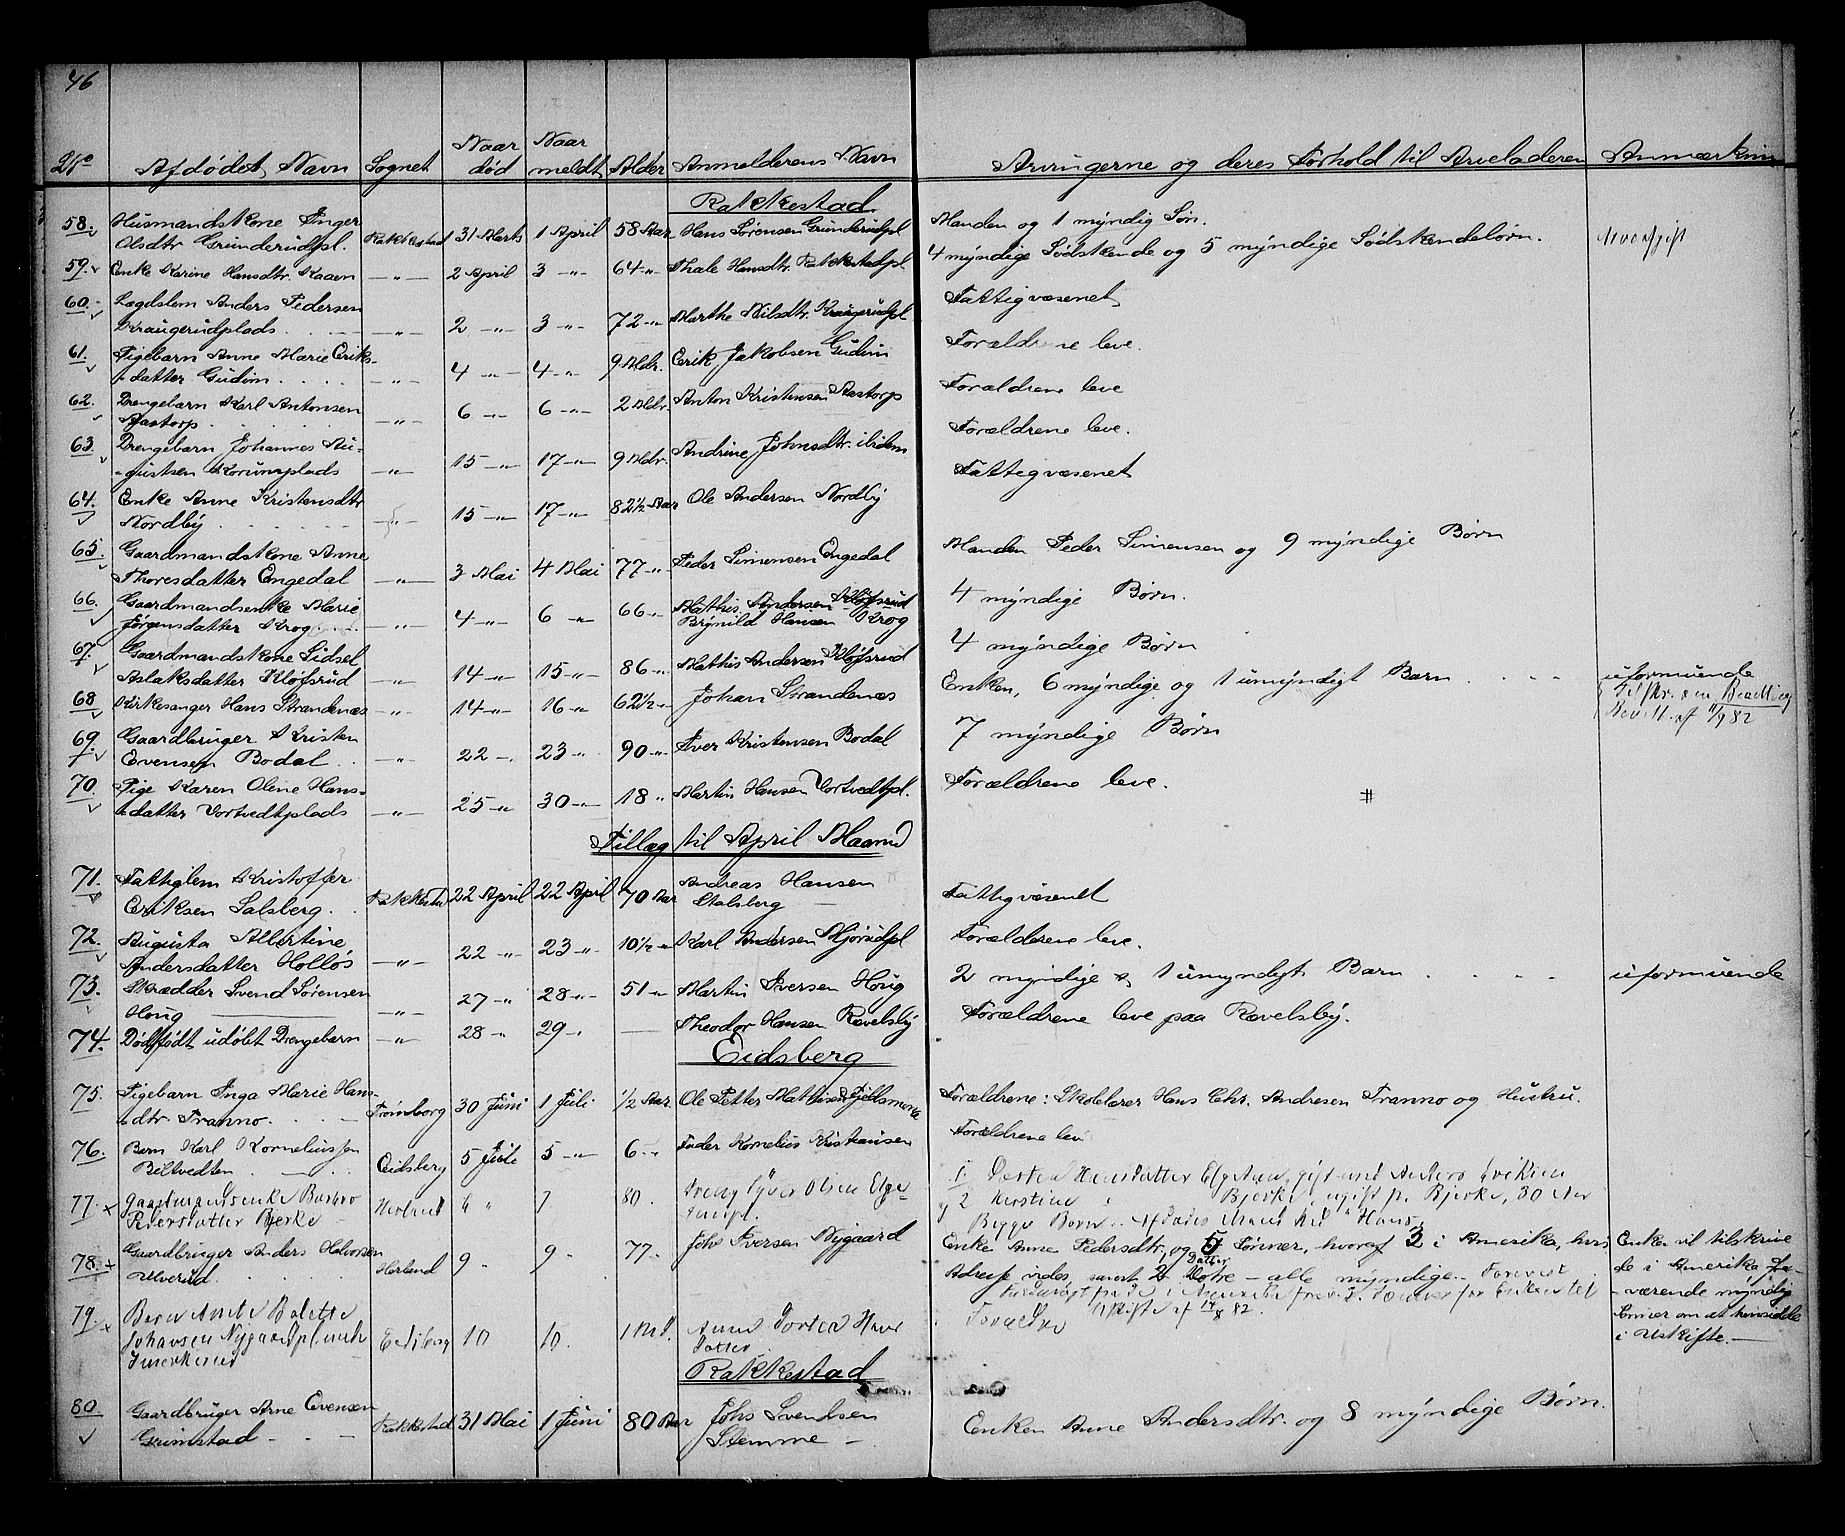 46
No Afdødes Navn Sognet Naar død Naar meldt Alder Anmelderens Navn Arvingerne og deres Forhold til Arveladeren Anmærkning
Rakkestad
58. Husmandskone Inger
Olsdtr. Grimderudpl. Rakkestad 31 Marts 1 April 58 Aar Hans Sørensen Grimderudpl Manden og 1 myndig Søn.
59. Enke Karine Hansdtr. Kaaen —„— 2 April 3 —„— 64 —„— Thale Hansdtr. Rakkestadpl 4 myndige Sødskende og 5 myndige Sødskendebørn. Arveafgift
60. Lægdslem Anders Pedersen
Kraugerudplads. —„— 2 —„— 3 —„— 72 —„— Marthe Nilsdtr. Kraugerudpl Fattigvæsenet
61. Pigebarn Anne Marie Eriks-
datter Gudim —„— 4 —„— 4 —„— 9 Mdr. Erik Jakobsen Gudim Forældrene leve.
62. Drengebarn Karl Antonsen
Aastorp —„— 6 —„— 6 —„— 2 Mdr. Anton Kristensen Aastorp Forældrene leve
63. Drengebarn Johannes Au-
gustsen Korumplads —„— 15 —„— 17 —„— 9 Mdr. Andrine Johnsdtr. ibidem Forældrene leve.
64. Enke Anne Kristensdtr
Nordby —„— 15 —„— 17 —„— 82½ Aar Ole Andersen Nordby Fattigvæsenet
65. Gaardmandskone Anne
Thoresdatter Engedal —„— 3 Mai 4 Mai 77 —„— Peder Simensen Engedal Manden Peder Simensen og 9 myndige Børn
66. Gaardmandsenke Marie
Jørgensdatter Krog —„— 4 —„— 6 —„— 66 —„— Brynild Hansen Krog 4 myndige Børn.
67. Gaardmandskone Sidsel
Aslaksdatter Kløfsrud —„— 14 —„— 15 —„— 86 —„— Mathis Andersen Kløfsrud 4 myndige Børn
68 Kirkesanger Hans Strandenæs —„— 14 —„— 16 —„— 62½ —„— Johan Strandenæs Enken, 6 myndige og 1 umyndigt Barn uformuende
Bevill. af 11/9 82
69. Gaardbruger Kristen
Evensen Bodal —„— 22 —„— 23 —„— 90 —„— Iver Kristensen Bodal 7 myndige Børn
70. Pige Karen Oline Hans-
datter Vortvedtplads —„— 25 —„— 30 —„— 18 „ Martin Hansen Vortvedtpl. Forældrene leve.
#
Tillæg til April Maaned
71. Fattiglem Kristoffer
Eriksen Salsberg. Rakkestad 22 April 22 April 70 Aar Andreas Hansen
Stalsberg Fattigvæsenet
72. Augusta Albertine
Andersdatter Holløs —„— 22 —„— 23 —„— 10½ —„— Karl Andersen Forældrene leve.
73. Skrædder Svend Sørensen
Houg —„— 27 —„— 28 —„— 51 —„— Martin Iversen Houg 2 myndige & 1 umyndigt Barn uformuende
74. Dødfødt udøbt Drengebarn —„— 28 —„— 29 „ — Theodor Hansen Rævelsby Forældrene leve paa Rævelsby.
Eidsberg
75. Pigebarn Inga Marie Hans-
dtr. Tranno. Trømborg 30 Juni 1 Juli ½ Aar Ole Petter Mathisen Forældrene: Skolelærer Hans Chr. Andresen Tranno og Hustru.
76. Barn Karl Korneliussen
Biltvedten Eidsberg 5 Juli 5 —„— 6 —„— Fader Kornelius Kristiansen Forældrene leve
77. Gaardmandsenke Barbro
Pedersdatter Bjerke Herland 6 „ 7 80. Iver Olsen 1. gift med Anders Eriksen
2 Kerstine Bjerke, ugift p. Bjerke, 30 Aar
Begge Børn Afdødes Mand Hans
78. Gaardbruger Anders Halvorsen
Ulverud. Herland 9 — 9 „ 77 „ Johs Iversen Nygaard Enke Anne Pedersdtr. og 5 Sønner, hvoraf 2 i Amerika, hvis
Adresse vides, samt 2 Døtre — alle myndige.
Enken vil tilskrive
de i Amerika fra-
værende myndige
Sønner om at henvidde
i Uskifte. —
79. Barn
Johansen Eidsberg 10 10. 1 Md. Forældre
Rakkestad
80. Gaardbruger Arne Evensen
Grimstad Rakkestad 31 Mai 1 Juni 80 Aar Johs Svendsen
Slemme — Enken Anne Andersdtr. og 8 myndige Børn.